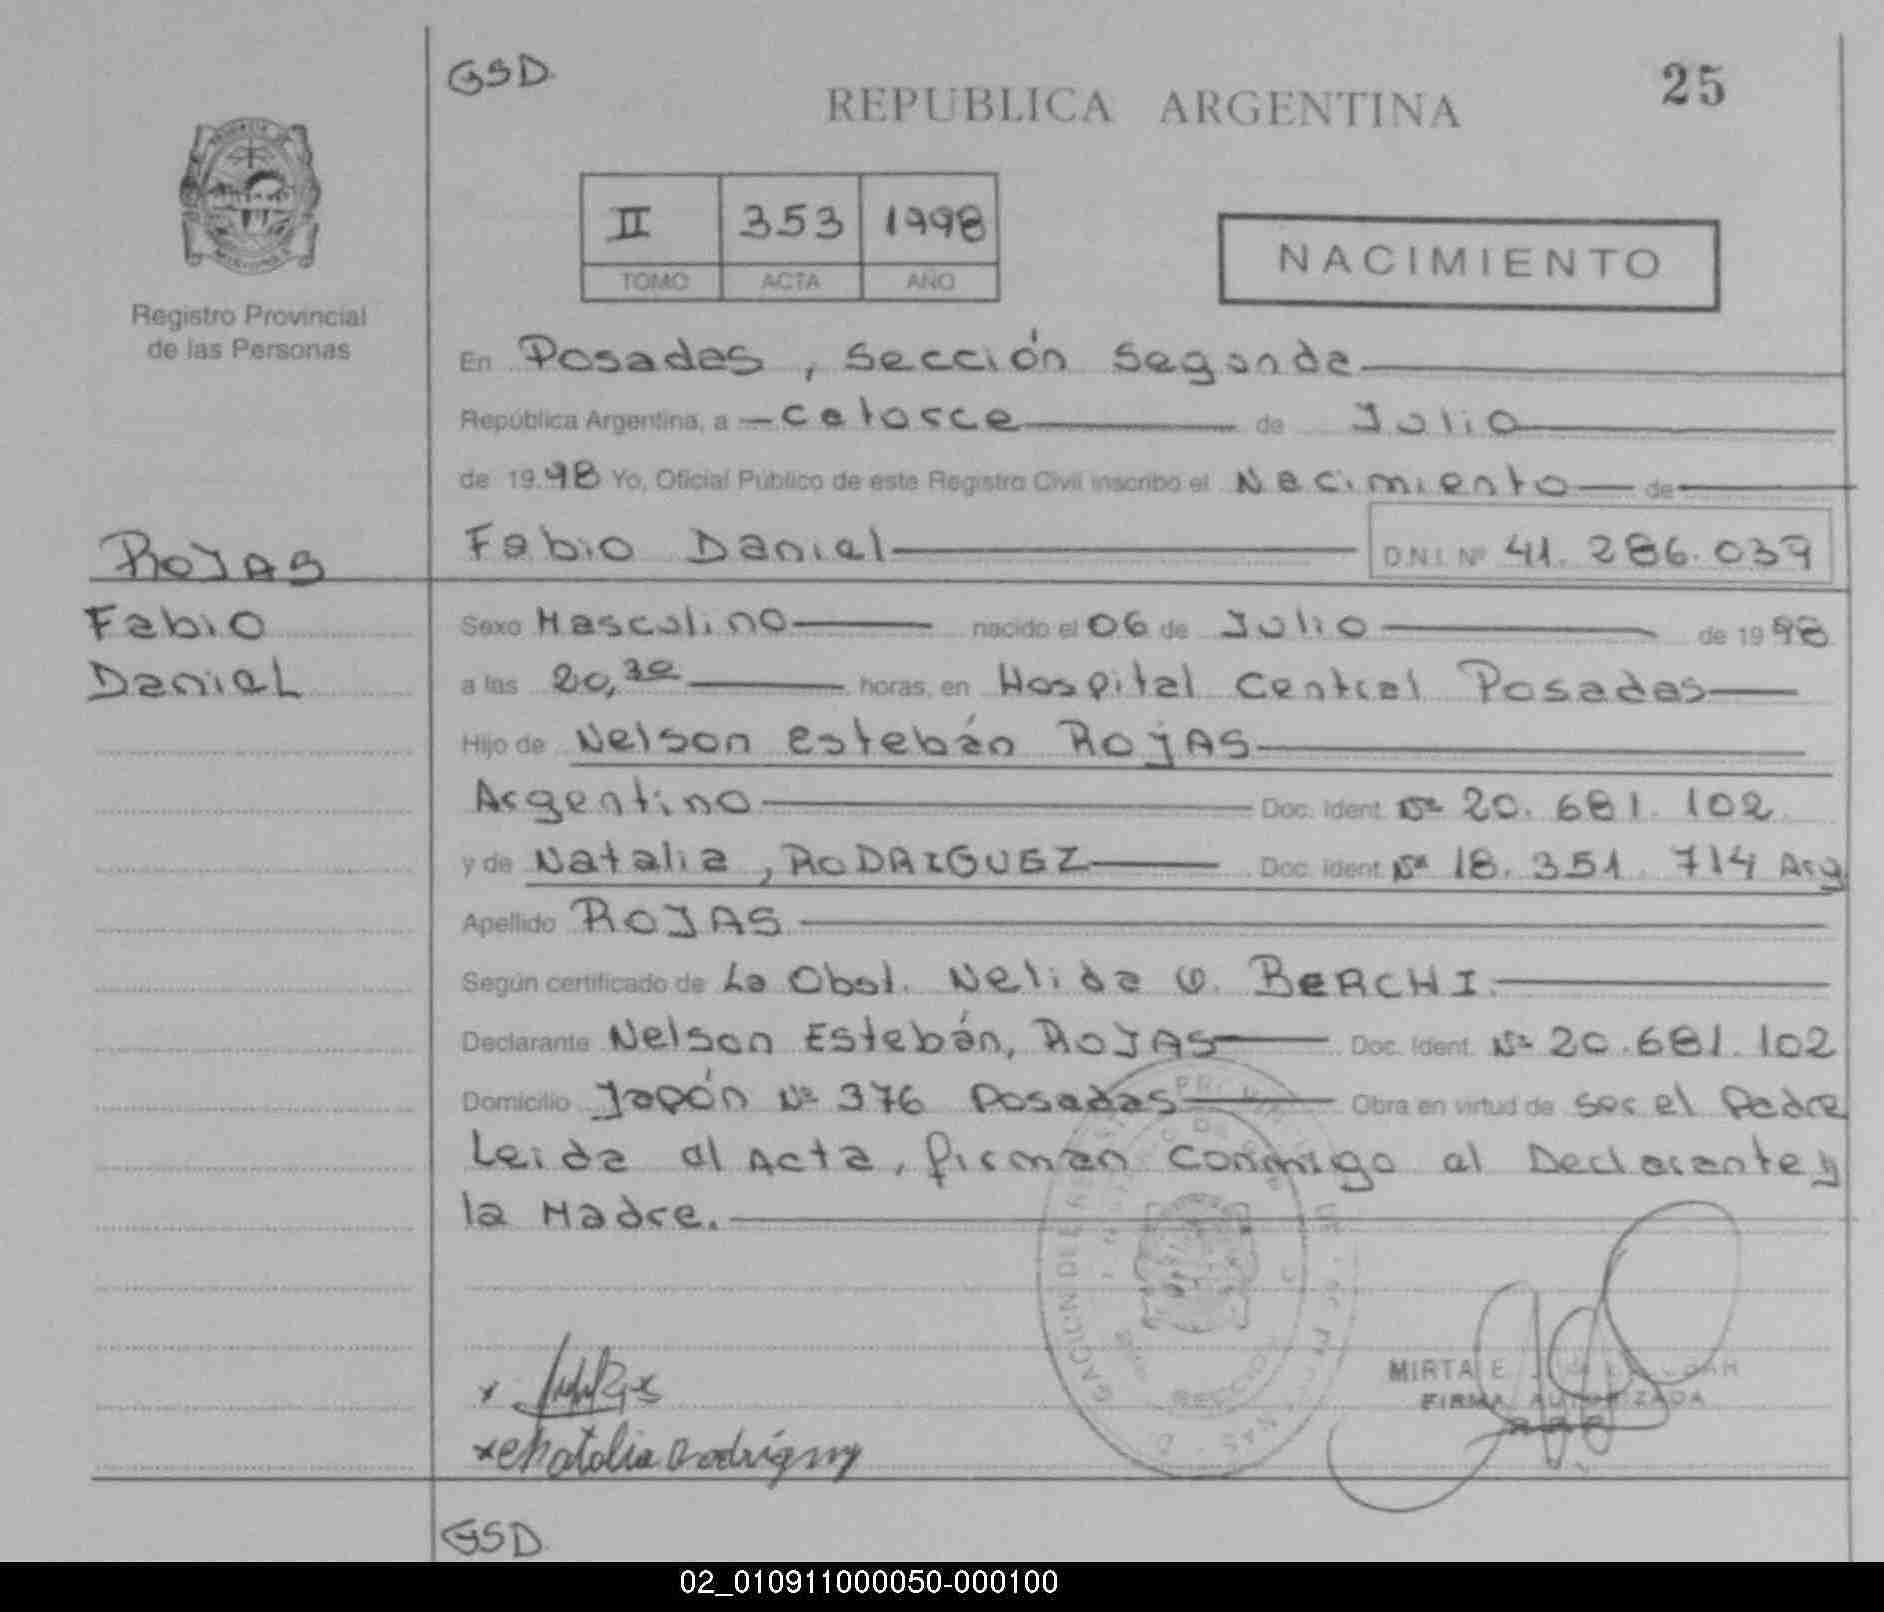 GSD
25
REPUBLICA ARGENTINA
II 353 1998
TOMO ACTA AÑO
NACIMIENTO
Registro Provincial
de las Personas
En Posadas, Sección Segunda
República Argentina, a Catorce de Julio
de 19.98 Yo, Oficial Público de este Registro Civil inscribo el Nacimiento de
ROJAS
Fabio Daniel D.N.I. Nº 41.286.039
Fabio
Sexo Masculino nacido el 06 de Julio de 1998
Daniel
a las 20,30 horas, en Hospital Central Posadas
Hijo de Nelson Estebán ROJAS
Argentino Doc. Ident. Nº 20.681.102
y de Natalia, RODRIGUEZ Doc. Ident. Nº 18.351.714 Arg
Apellido ROJAS
Según certificado de La Obst. Nelida O. BERCHI.
Declarante Nelson Estebán, ROJAS Doc. Ident. Nº 20.681.102
Domicilio Japón Nº 376 Posadas Obra en virtud de ser el Padre
Leida al Acta, firman conmigo al Declarante y
la Madre.
MIRTA E
FIRMA AUTORIZADA
Natalia Rodriguez
GSD
02_010911000050-000100